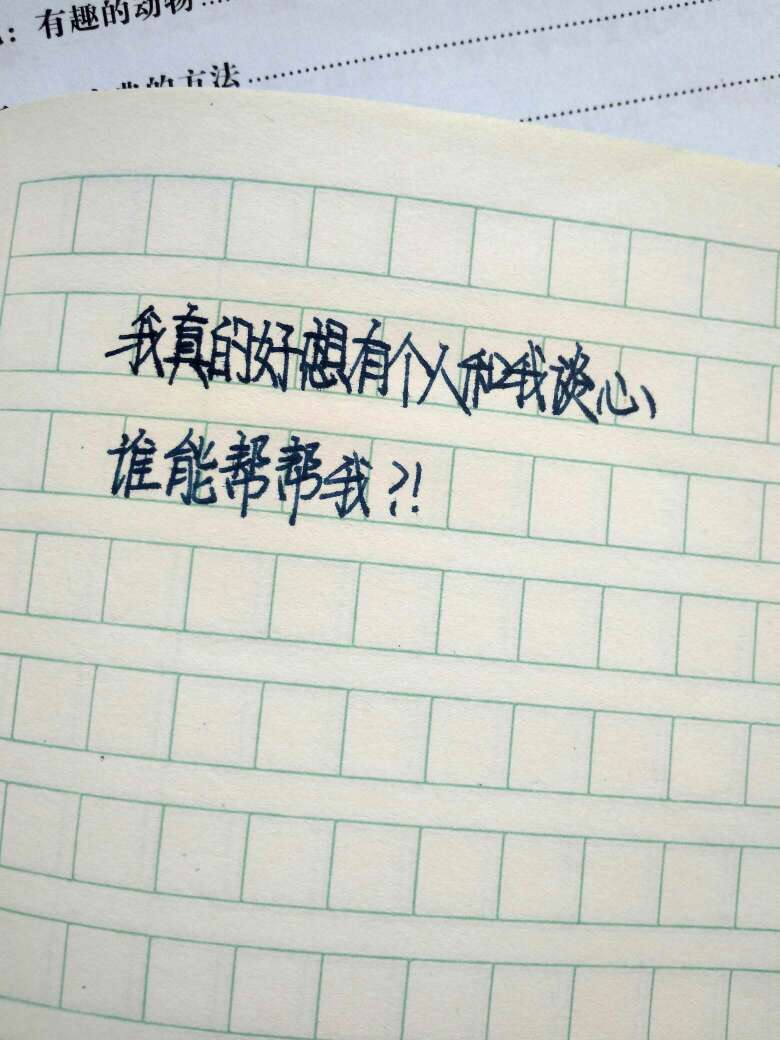 ：有趣的动物
的方法
我真的好想有个人和我谈心、
谁能帮帮我？！